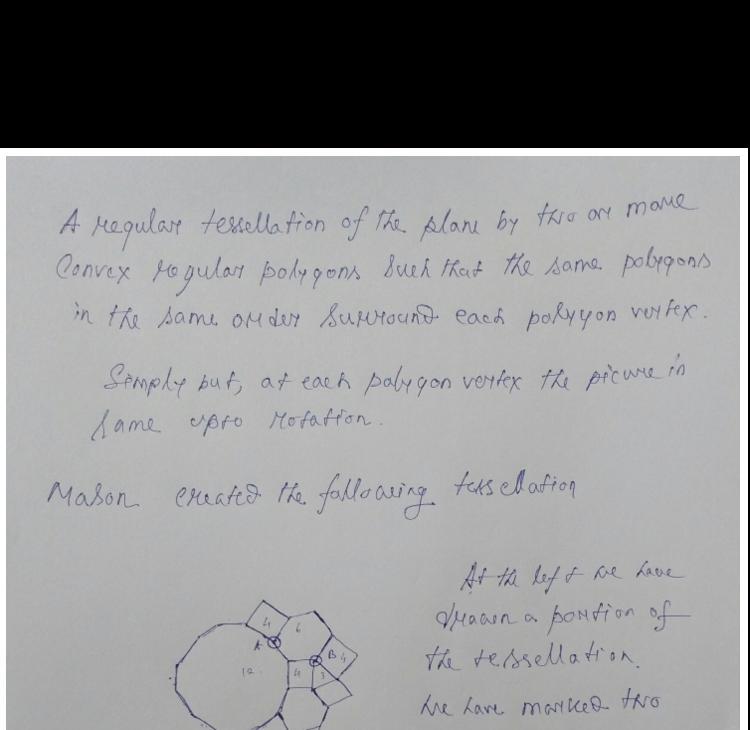 A regular tessellation of the plane by two or more
Convex regular polygons Such that the same polygons
in the same order Surround each polygon vertex.
Simply put, at each polygon vertex the picture is
same upto rotation.
Mason created the following tessellation
At the left we have
drawn a portion of
the tessellation.
we have marked two
4
6
A
B
4
12
4
3